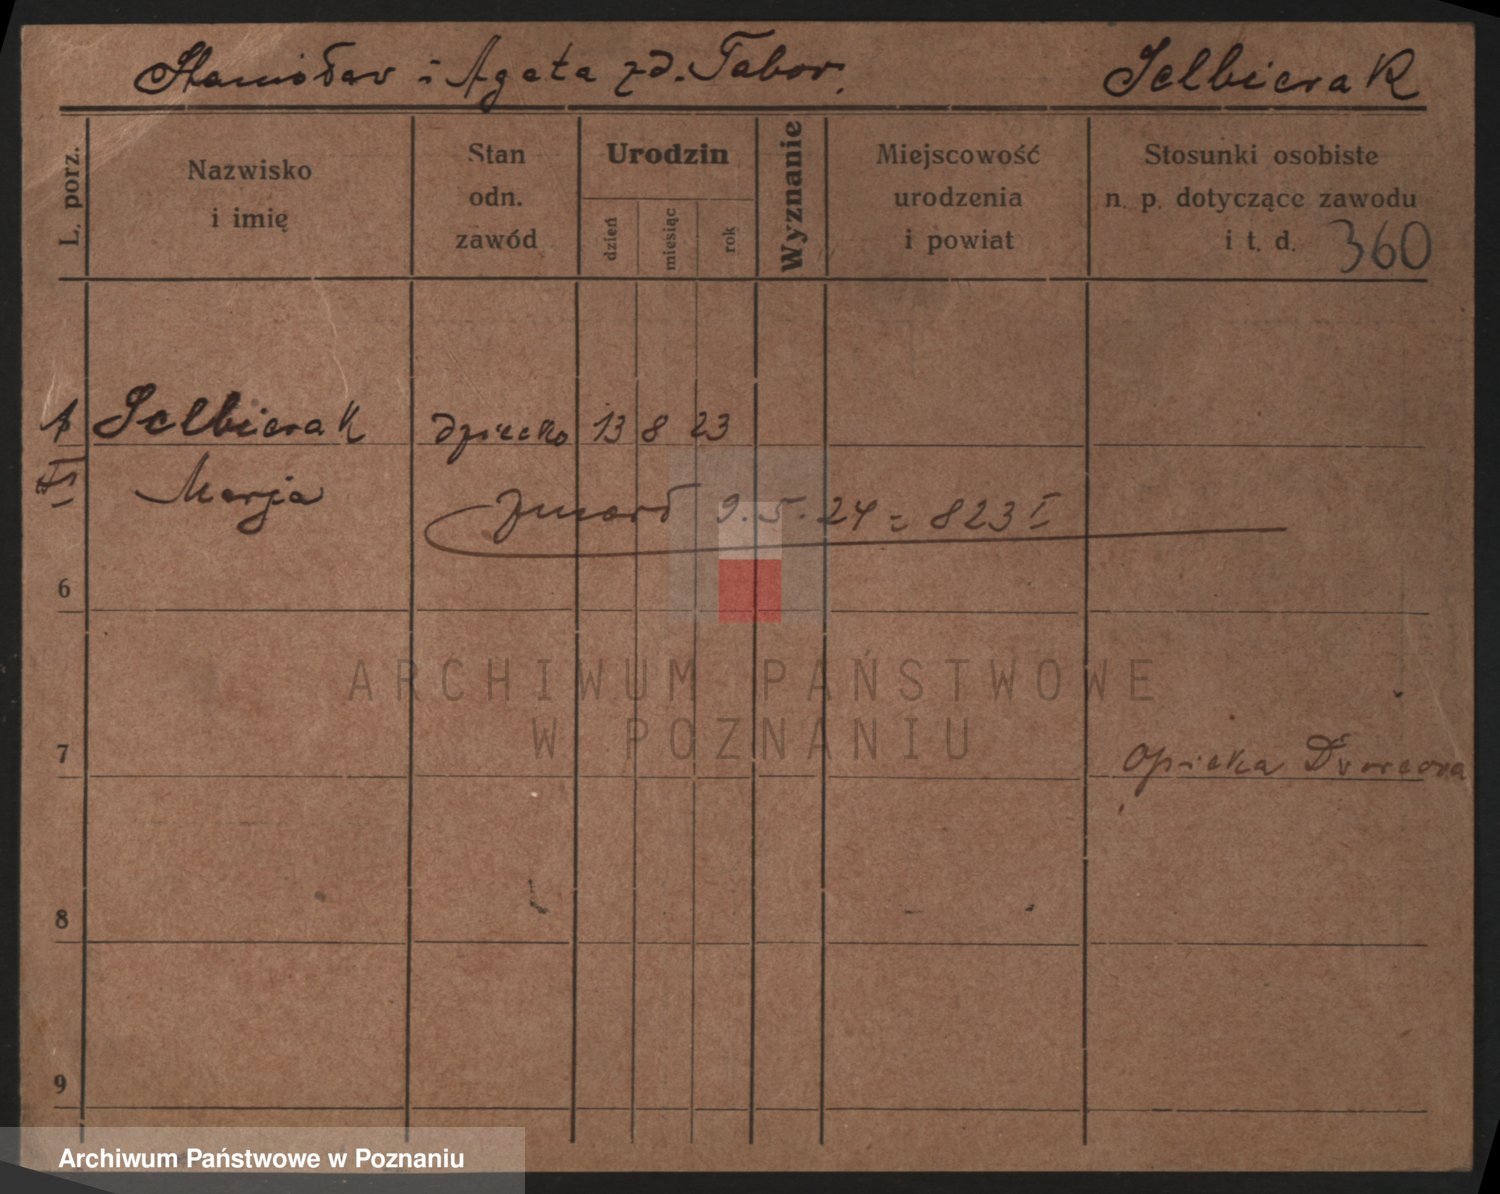 Stanisław i Agata zd. Tabor. Selbierak
L. porz.
Nazwisko
i imię
Stan
odn.
zawód
Urodzin
dzień
miesiąc
rok
Wyznanie
Miejscowość
urodzenia
i powiat
Stosunki osobiste
n. p. dotyczące zawodu
i t. d. 360
Selbierak dziecko 13 8 23
Marja
zmarł 9.5.24 = 823 I
6
7
Opieka
8
9
ARCHIWUM PAŃSTWOWE
W POZNANIU
Archiwum Państwowe w Poznaniu